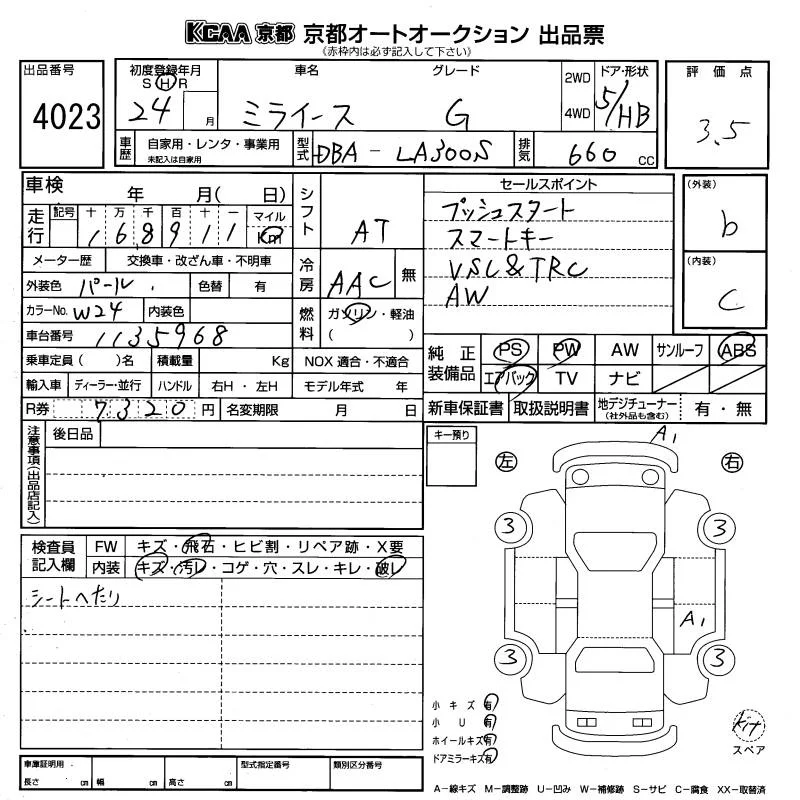 KCAA 京都 京都オートオークション 出品票
(赤枠内は必ず記入して下さい)
出品番号
4023
初度登録年月
S H R
24 月
車名
ミライース
グレード
G
2WD
4WD
ドア・形状
5/HB
評価点
3.5
車歴
自家用・レンタ・事業用
未記入は自家用
型式
DBA - LA300S
排気
660 CC
車検 年 月( 日)
走行
記号 十 万 千 百 十 一 マイル
1 6 8 9 1 1 Km
メーター歴 交換車・改ざん車・不明車
外装色 パール
色替 有
カラーNo. W24 内装色
車台番号 1135968
乗車定員( )名 積載量 Kg
輸入車 ディーラー・並行 ハンドル 右H・左H
R券 7320円 名変期限 月 日
シフト AT
冷房 AAC 無
燃料 ガソリン・軽油
( )
NOX 適合・不適合
モデル年式 年
セールスポイント
プッシュスタート
スマートキー
VSC&TRC
AW
(外装)
b
(内装)
C
純正装備品
PS PW AW サンルーフ ABS
エアバック TV ナビ
新車保証書 取扱説明書 地デジチューナー
(社外品も含む)
有・無
注意事項(出品店記入)
後日品
キー預り
検査員記入欄
FW キズ・飛石・ヒビ割・リペア跡・X要
内装 キズ・汚レ・コゲ・穴・スレ・キレ・破レ
シートへたり
左
右
A1
3
3
A1
3
3
小キズ 有
小U 有
ホイールキズ 有
ドアミラーキズ 有
kit
スペア
車庫証明用
長さ cm 幅 cm 高さ cm
型式指定番号
類別区分番号
A−線キズ M−調整跡 U−凹み W−補修跡 S−サビ C−腐食 XX−取替済